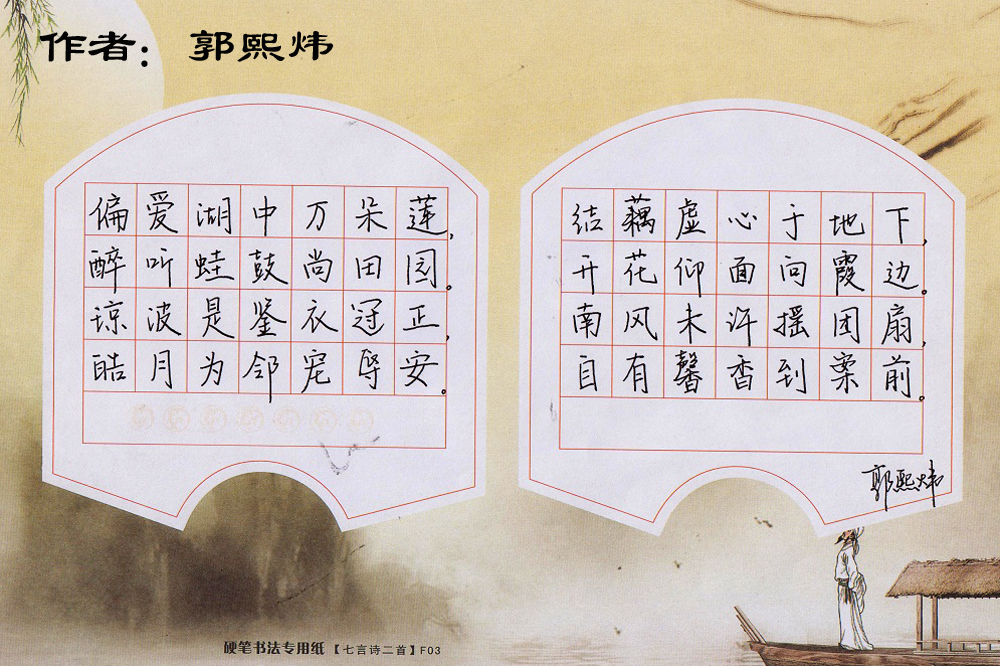 作者：郭熙炜
偏爱湖中万朵莲,
醉听蛙鼓尚田园。
琼波是鉴衣冠正,
皓月为邻宠辱安。
结藕虚心于地下,
开花仰面向霞边。
南风未许摇团扇,
自有馨香到案前。
郭熙炜
硬笔书法专用纸【七言诗二首】F03